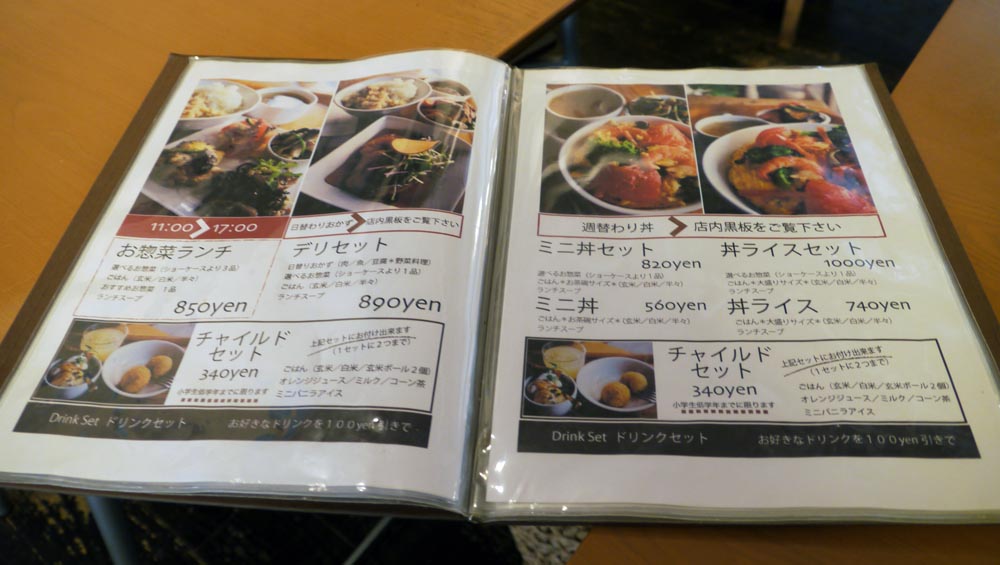 11:00 > 17:00
日替わりおかず > 店内黒板をご覧下さい
お惣菜ランチ
選べるお惣菜（ショーケースより３品）
ごはん（玄米／白米／半々）
おすすめお惣菜　１品
ランチスープ
850yen
デリセット
日替りおかず（肉／魚／豆腐＊野菜料理）
選べるお惣菜（ショーケースより１品）
ごはん（玄米／白米／半々）
ランチスープ
890yen
チャイルド
セット
340yen
小学生低学年までに限ります
上記セットにお付け出来ます
（１セットに２つまで）
ごはん（玄米／白米／玄米ボール２個）
オレンジジュース／ミルク／コーン茶
ミニバニラアイス
Drink Set ドリンクセット　お好きなドリンクを１００yen 引きで
週替わり丼 > 店内黒板をご覧下さい
ミニ丼セット
820yen
選べるお惣菜（ショーケースより１品）
ごはん＊お茶碗サイズ＊（玄米／白米／半々）
ランチスープ
ミニ丼　560yen
ごはん＊お茶碗サイズ＊（玄米／白米／半々）
ランチスープ
丼ライスセット
1000yen
選べるお惣菜（ショーケースより１品）
ごはん＊大盛りサイズ＊（玄米／白米／半々）
ランチスープ
丼ライス　740yen
ごはん＊大盛りサイズ＊（玄米／白米／半々）
ランチスープ
チャイルド
セット
340yen
小学生低学年までに限ります
上記セットにお付け出来ます
（１セットに２つまで）
ごはん（玄米／白米／玄米ボール２個）
オレンジジュース／ミルク／コーン茶
ミニバニラアイス
Drink Set ドリンクセット　お好きなドリンクを１００yen 引きで